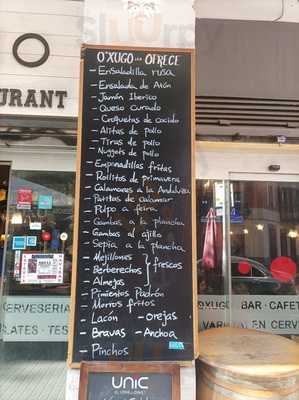 O'XUGO OFRECE
- Ensaladilla rusa
- Ensalada de Atún
- Jamón Iberico
- Queso Curado
- Croquetas de cocido
- Alitas de pollo
- Tiras de pollo
- Nuggets de pollo
- Empanadillas fritas
- Rollitos de primavera
- Calamares a la Andaluza
- Patitas de Calamar
- Pulpo a feira
- Gambas a la plancha
- Gambas al ajillo
- Sepia a la plancha
- Mejillones
- Berberechos } frescos
- Almejas
- Pimientos Padrón
- Morros fritos
- Lacón - Orejas
- Bravas - Anchoa
- Pinchos
URANT
CERVESERIA
LATES - TES
OXUGO BAR - CAFETE
EN CERV
UNIC